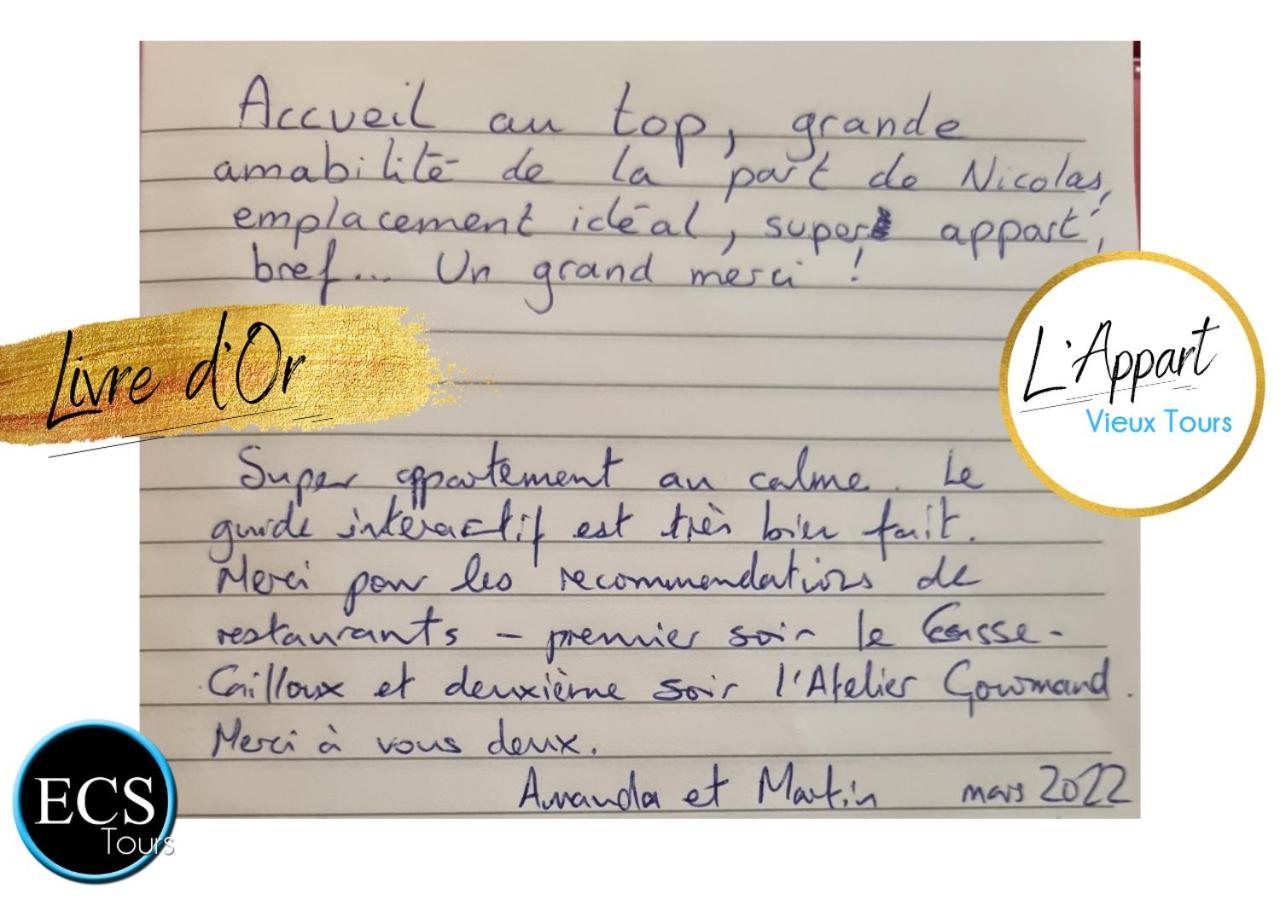 Accueil au top, grande
amabilité de la part de Nicolas,
emplacement idéal, super appart,
bref... Un grand merci !
Livre d'Or
L'Appart
Vieux Tours
Super appartement au calme. Le
guide interactif est très bien fait.
Merci pour les recommendations de
restaurants - premier soir le Casse-
Cailloux et deuxième soir l'Atelier Gourmand.
Merci à vous deux.
Amanda et Martin mars 2022
ECS
Tours